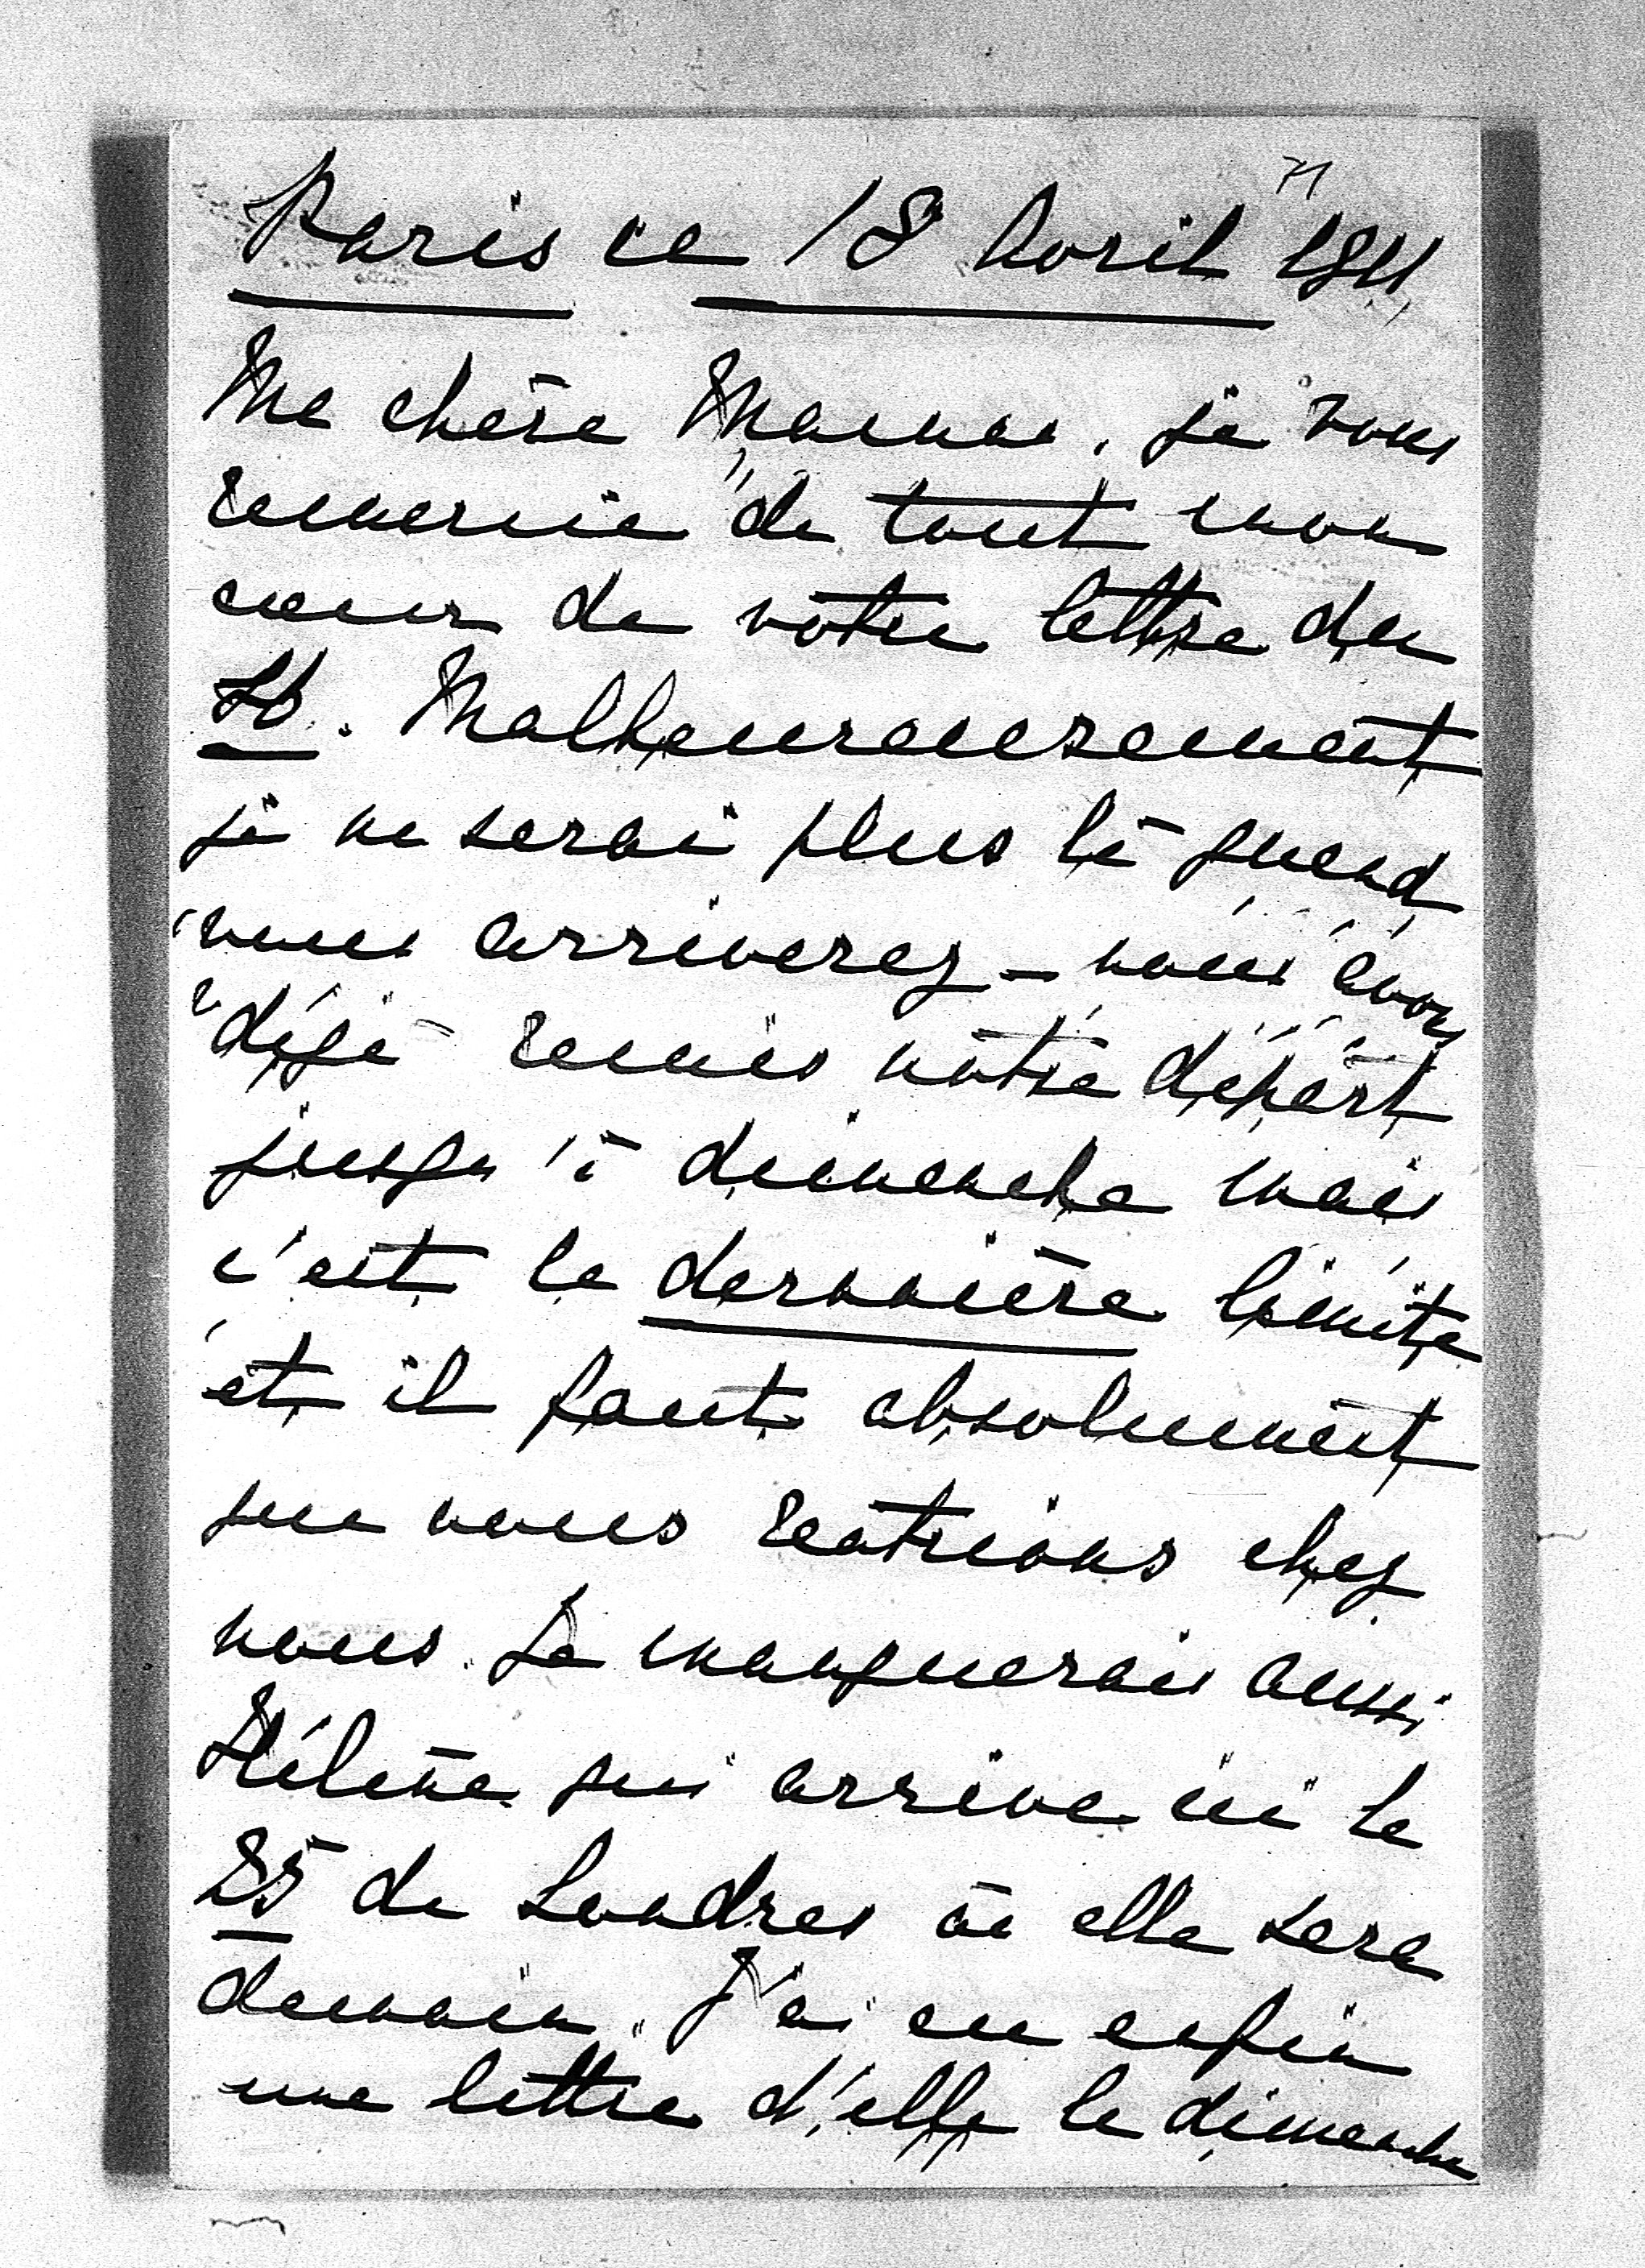 71
Paris ce 18 Avril 1911
Ma chère Maman, je vous
remercie de tout mon
cœur de votre lettre du
16. Malheureusement
je ne serai plus là quand
vous arriverez – nous avons
déjà remis notre départ
jusqu'à dimanche mais
c'est la dernière limite
et il faut absolument
que nous rentrions chez
nous. Je manquerais aussi
Hélène qui arrive ici le
25 de Londres où elle sera
demain. J'ai eu enfin
une lettre d'elle le dimanche